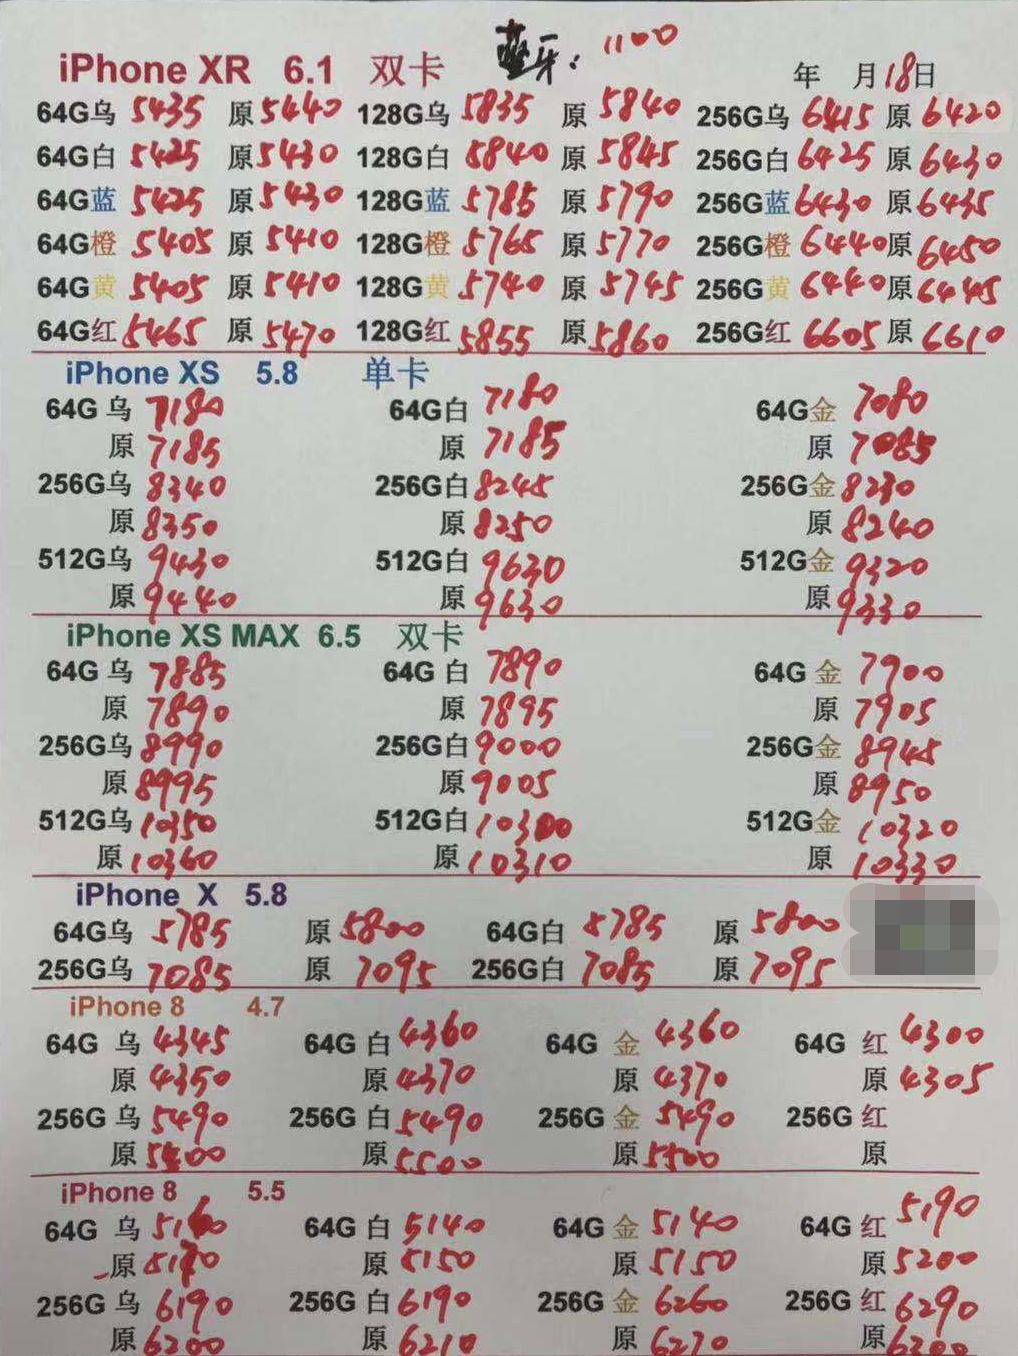 蓝牙：1100
iPhone XR 6.1 双卡 年 月18日
64G乌 5435 原5440 128G乌 5835 原 5840 256G乌 6415 原 6420
64G白 5425 原5430 128G白 5840 原 5845 256G白 6425 原 6430
64G蓝 5425 原5430 128G蓝 5785 原 5790 256G蓝 6430 原6435
64G橙 5405 原 5410 128G橙 5765 原 5770 256G橙 6440 原6450
64G黄 5405 原 5410 128G黄 5740 原 5745 256G黄 6440 原6445
64G红 5465 原 5470 128G红 5855 原 5860 256G红 6605 原 6610
iPhone XS 5.8 单卡
64G 乌 7180 64G白 7180 64G金 7080
原 7185 原 7185 原 7085
256G乌 8340 256G白 8245 256G金 8230
原 8350 原 8250 原 8240
512G乌 9430 512G白 9630 512G金 9320
原 9440 原 9630 原 9330
iPhone XS MAX 6.5 双卡
64G 乌 7885 64G 白 7890 64G 金 7900
原 7890 原 7895 原 7905
256G乌 8990 256G白 9000 256G金 8945
原 8995 原 9005 原 8950
512G乌 10350 512G白 10300 512G金 10320
原 10360 原 10310 原 10330
iPhone X 5.8
64G乌 5785 原 5800 64G白 5785 原 5800
256G乌 7085 原 7095 256G白 7085 原 7095
iPhone 8 4.7
64G 乌 4345 64G 白 4360 64G 金 4360 64G 红 4300
原 4350 原 4370 原 4370 原 4305
256G 乌 5490 256G 白 5490 256G 金 5490 256G 红
原 5500 原 5500 原 5500 原
iPhone 8 5.5
64G 乌 5160 64G 白 5140 64G 金 5140 64G 红 5190
原 5170 原 5150 原 5150 原 5200
256G 乌 6190 256G 白 6190 256G 金 6260 256G 红 6290
原 6200 原 6210 原 6270 原 6300